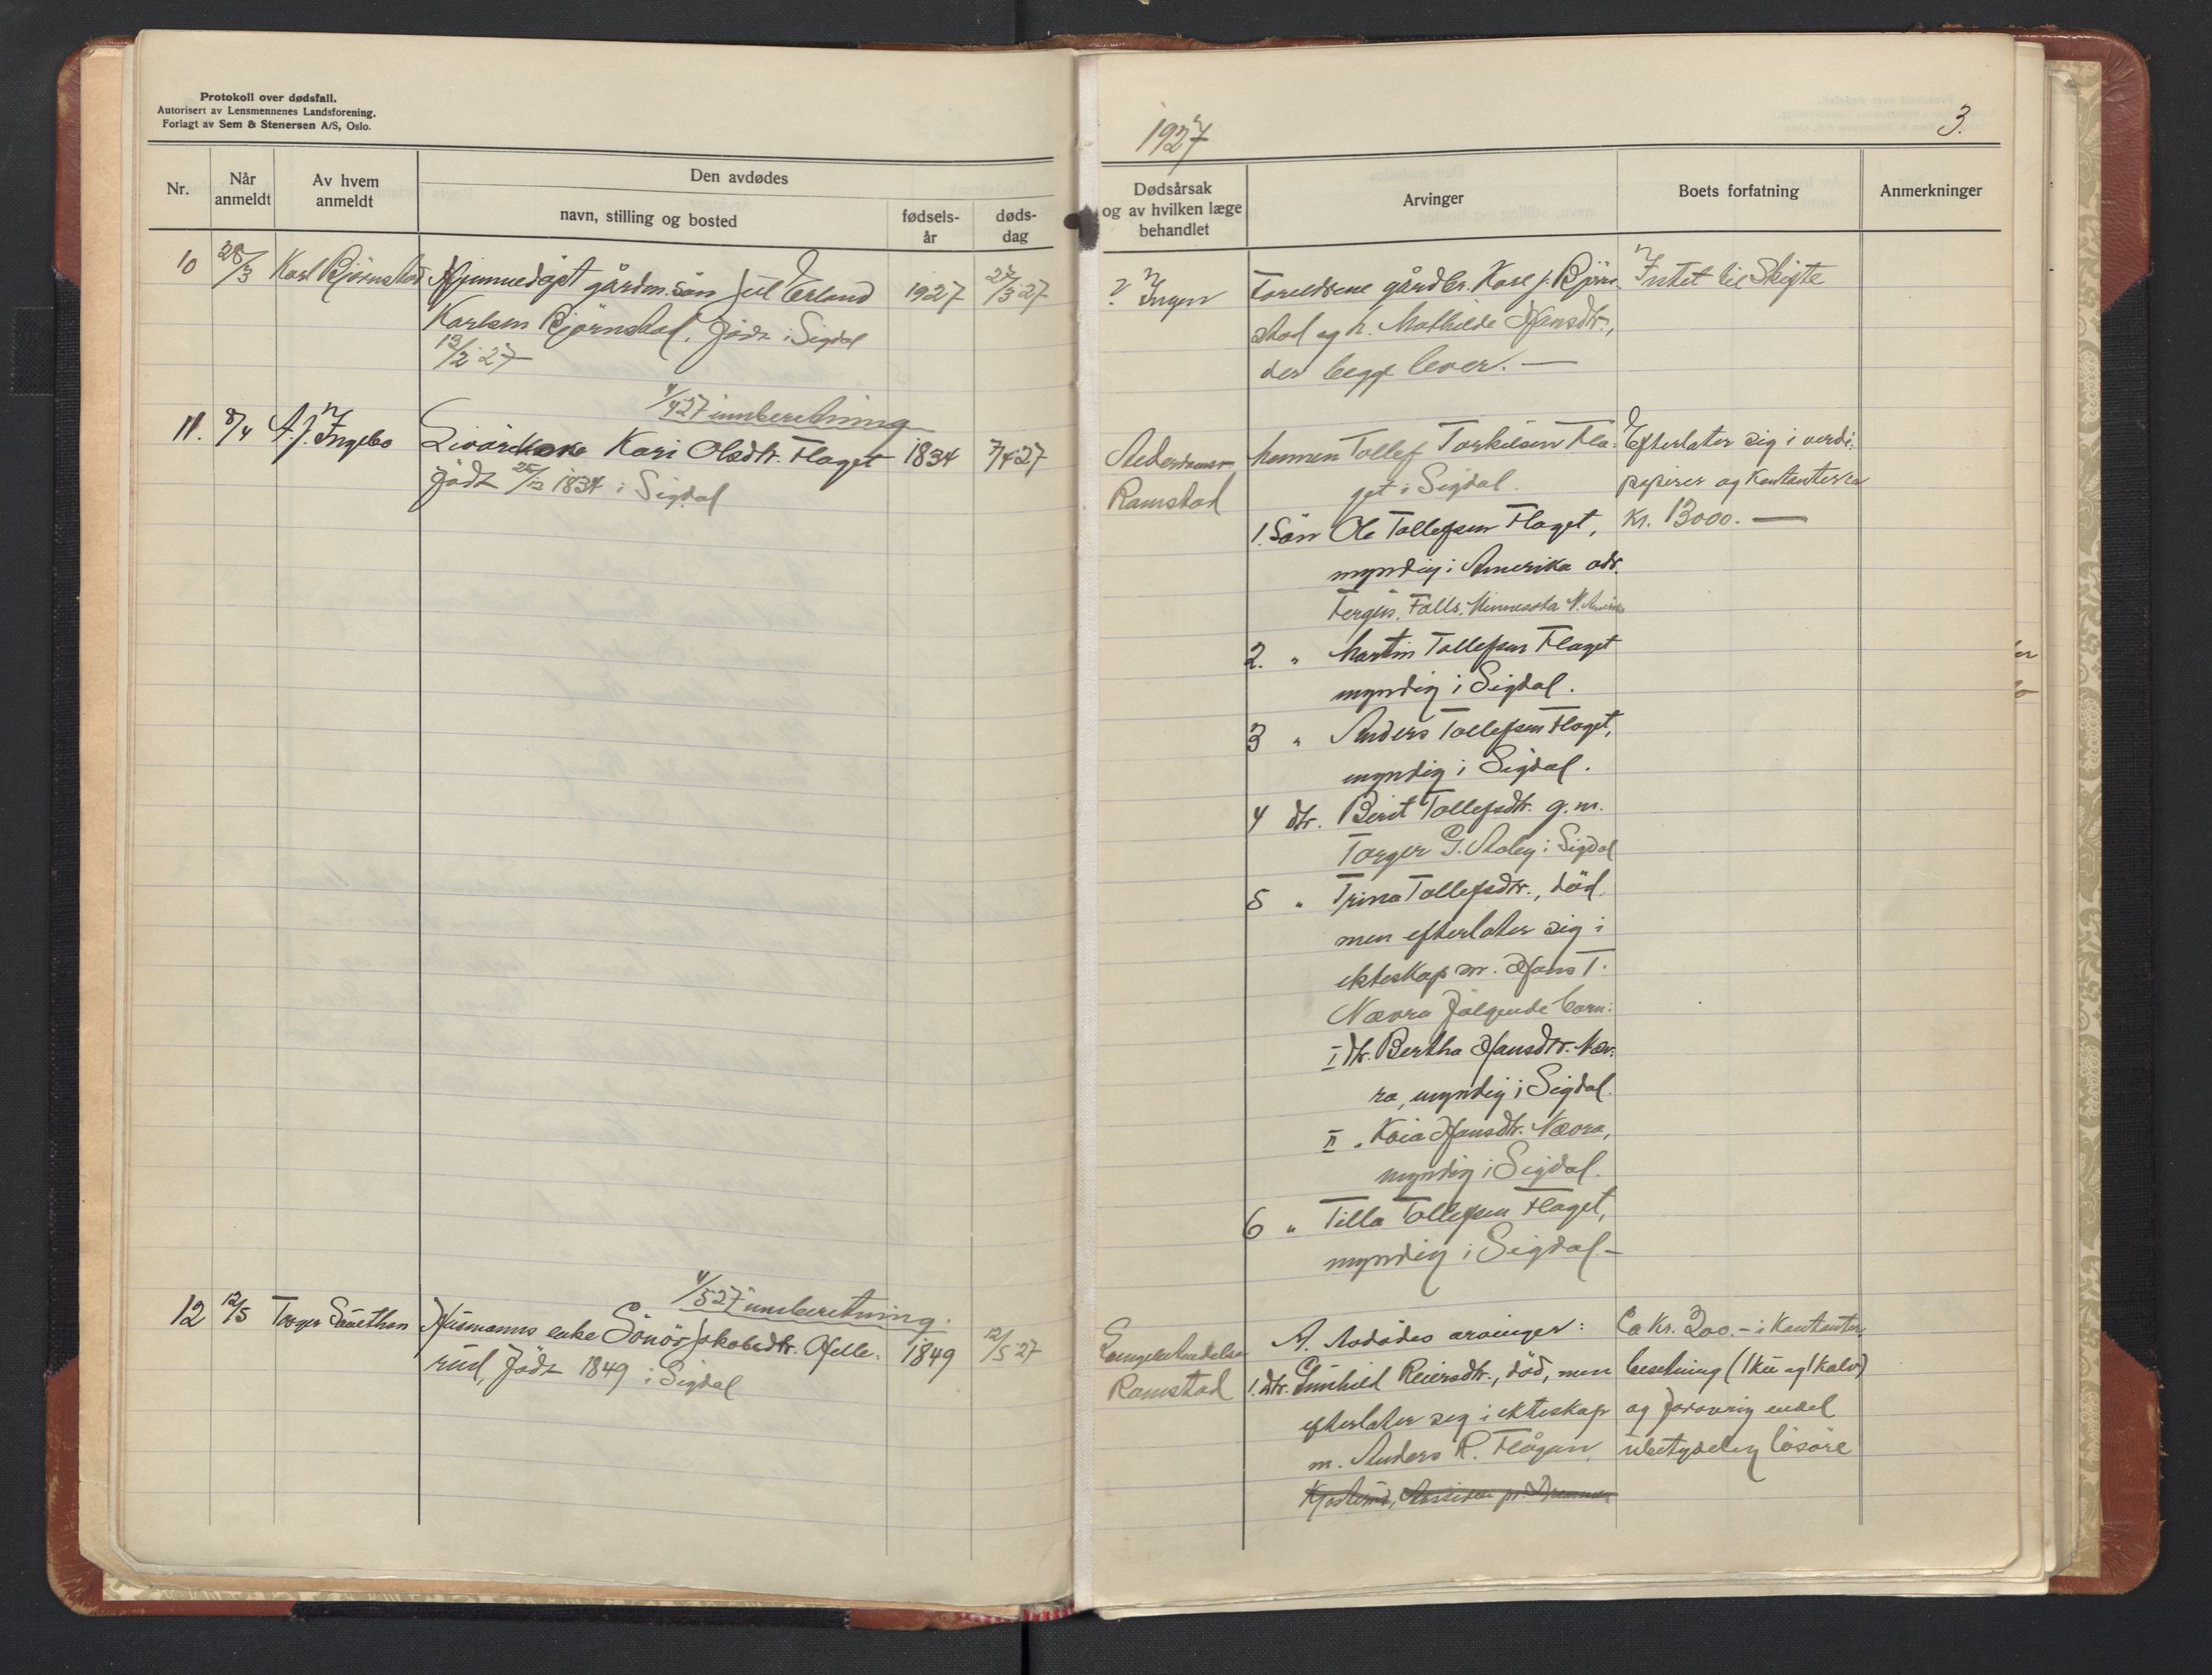 Protokoll over dødsfall.
Autorisert av Lensmennenes Landsforening.
Forlagt av Sem & Stenersen A/S, Oslo.
Nr.
Når anmeldt
Av hvem anmeldt
Den avdødes
navn, stilling og bosted
fødsels-år
døds-dag
10 28/3 Karl Bjørnstad Hjemmedøpt gårdm.søn Juel Erland 1927 27/3 27
Karlsen Bjørnstad, født i Sigdal
13/2 27
4/4 27 innberetning
11. 8/4 A. J. Ingebo Livørkone Kari Olsdtr. Flaget 1834 7/4 27
født 25/12 1834 i Sigdal
4/5 27 innberetning.
12 12/5 Torger Sauethon Husmanns enke Sönöv Jakobsdtr. Helle- 1849 12/5 27
rud, født 1849 i Sigdal
1927
3.
Dødsårsak
og av hvilken læge
behandlet
Arvinger
Boets forfatning
Anmerkninger
? Ingen
Foreldrene gårdbr. Karl J. Bjørn-
stad og h. Mathilde Hansdtr.,
der begge lever. —
Intet til Skifte
Alderdomsv.
Ramstad
Mannen Tollef Torkilsen Fla-
get i Sigdal.
1. Søn Ole Tollefsen Flaget,
myndig i Amerika adr.
Fergus Falls. Minnesota N. Amerika
2. " Martin Tollefsen Flaget
myndig i Sigdal.
3 " Anders Tollefsen Flaget,
myndig i Sigdal.
4 dtr. Berit Tollefsdtr. g. m.
Torger G. Aaley i Sigdal
5 " Trina Tollefsdtr., död.
men efterlater sig i
ekteskap m. Hans T.
Nævra følgende barn:
I dtr. Bertha Hansdtr. Næv-
ra, myndig i Sigdal.
II " Kaia Hansdtr. Nævra,
myndig i Sigdal.
6 " Tilla Tollefsen Flaget,
myndig i Sigdal. —
Efterlater sig i verdi-
papirer og kontanter ca
kr. 13000. —
Lungebetendelse
Ramstad
A. Avdødes arvinger:
1. dtr. Gunhild Reiersdtr., död, men
efterlater seg i ekteskap
m. Anders R. Flågan,
Ca kr. 200.– i kontanter,
besetning (1 ku og 1 kalv)
og forøvrig endel
ubetydelig løsøre